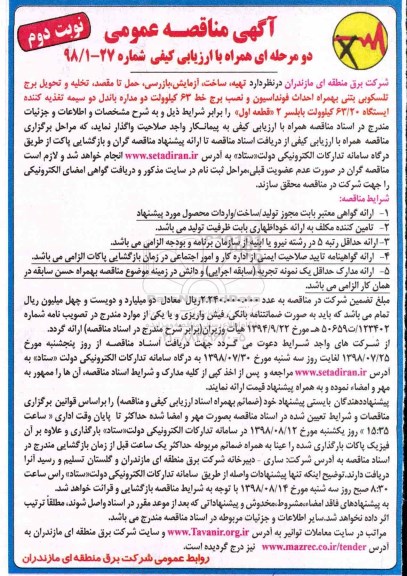 نوبت دوم
آگهی مناقصه عمومی
دو مرحله ای همراه با ارزیابی کیفی شماره ۲۷-۹۸/۱
شرکت برق منطقه ای مازندران درنظردارد تهیه، ساخت، آزمایش،بازرسی، حمل تا مقصد، تخلیه و تحویل برج
تلسکوپی بتنی بهمراه احداث فونداسیون و نصب برج خط ۶۳ کیلوولت دو مداره باندل دو سیمه تغذیه کننده
ایستگاه ۶۳/۲۰ کیلوولت بابلسر ۲ «قطعه اول» را برابر شرایط ذیل و به شرح مشخصات و اطلاعات و جزئیات
مندرج در اسناد مناقصه همراه با ارزیابی کیفی به پیمانکار واجد صلاحیت واگذار نماید، که مراحل برگزاری
مناقصه همراه با ارزیابی کیفی از دریافت اسناد مناقصه تا ارائه پیشنهاد مناقصه گران و بازگشایی پاکت از طریق
درگاه سامانه تدارکات الکترونیکی دولت«ستاد» به آدرس www.setadiran.ir انجام خواهد شد و لازم است
مناقصه گران در صورت عدم عضویت قبلی،مراحل ثبت نام در سایت مذکور و دریافت گواهی امضای الکترونیکی
را جهت شرکت در مناقصه محقق سازند.
شرایط مناقصه:
۱- ارائه گواهی معتبر بابت مجوز تولید/ساخت/واردات محصول مورد پیشنهاد
۲- تامین کننده مکلف به ارائه خوداظهاری بابت ظرفیت تولید می باشد.
۳- ارائه حداقل رتبه ۵ در رشته نیرو یا ابنیه از سازمان برنامه و بودجه الزامی می باشد.
۴- ارائه گواهینامه تایید صلاحیت ایمنی از اداره کار و امور اجتماعی در زمان بازگشایی پاکات الزامی می باشد.
۵- ارائه مدارک حداقل یک نمونه تجربه (سابقه اجرایی) و دانش در زمینه موضوع مناقصه بهمراه حسن سابقه در
همان کار الزامی می باشد.
مبلغ تضمین شرکت در مناقصه به عدد ۲.۲۴۰.۰۰۰.۰۰۰ریال معادل دو میلیارد و دویست و چهل میلیون ریال
تمام می باشد که باید به صورت ضمانتنامه بانکی، فیش واریزی و یا یکی از موارد مندرج در تصویب نامه شماره
۱۲۳۴۰۲/ت۵۰۶۵۹ هـ مورخ ۱۳۹۴/۹/۲۲ هیات وزیران(برابر شرح مندرج در اسناد مناقصه) ارائه گردد.
از شرکت های واجد شرایط دعوت می گردد جهت دریافت اسناد مناقصه از روز پنجشنبه مورخ
۱۳۹۸/۰۷/۲۵ لغایت روز سه شنبه مورخ ۱۳۹۸/۰۷/۳۰ به درگاه سامانه تدارکات الکترونیکی دولت «ستاد» به
آدرس www.setadiran.ir مراجعه و پس از اخذ کپی از کلیه مدارک و شرایط اسناد مناقصه، آن ها را ممهور به
مهر و امضاء نموده و به همراه پیشنهاد قیمت ارائه نمایند.
پیشنهاددهندگان بایستی پیشنهاد خود (ضمائم بهمراه اسناد ارزیابی کیفی و مناقصه) را براساس قوانین برگزاری
مناقصات و شرایط تعیین شده در اسناد مناقصه بصورت مهر و امضا شده حداکثر تا پایان وقت اداری « ساعت
۱۵:۳۵ » روز یکشنبه مورخ ۱۳۹۸/۰۸/۱۲ در سامانه تدارکات الکترونیکی دولت«ستاد» بارگذاری و علاوه بر آن
فیزیک پاکات بارگذاری شده را عینا به همراه ضمائم مربوطه حداکثر یک ساعت قبل از زمان بازگشایی مندرج در
اسناد مناقصه به آدرس شرکت: ساری - دبیرخانه شرکت برق منطقه ای مازندران و گلستان تسلیم و رسید آنرا
دریافت دارند.توضیح اینکه تنها پیشنهادات واصله از طریق سامانه تدارکات الکترونیکی دولت«ستاد» راس ساعت
۸:۳۰ صبح روز سه شنبه مورخ ۱۳۹۸/۰۸/۱۴ با توجه به شرایط مناقصه بازگشایی و قرائت خواهد شد.
به پیشنهادهای فاقد امضاء،مشروط،مخدوش و پیشنهاداتی که بعد از موعد مقرر در اسناد واصل شوند، مطلقاً ترتیب
اثر داده نخواهد شد.سایر اطلاعات و جزئیات مربوطه در اسناد مناقصه مندرج می باشد.
مراتب در سایت معاملات توانیر به آدرس www.Tavanir.org.ir و سایت شرکت برق منطقه ای مازندران به
آدرس www.mazrec.co.ir/tender نیز درج گردیده است.
روابط عمومی شرکت برق منطقه ای مازندران